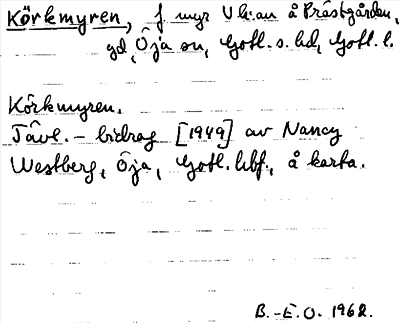 Körkmyren, f. myr V k:an å Prästgården,
gd, Öja sn, Gotl. s. hd, Gotl. l.
Körkmyren.
Tävl. - bidrag [1949] av Nancy
Westberg, Öja, Gotl. hbf., å karta.
B.-E.O. 1962.